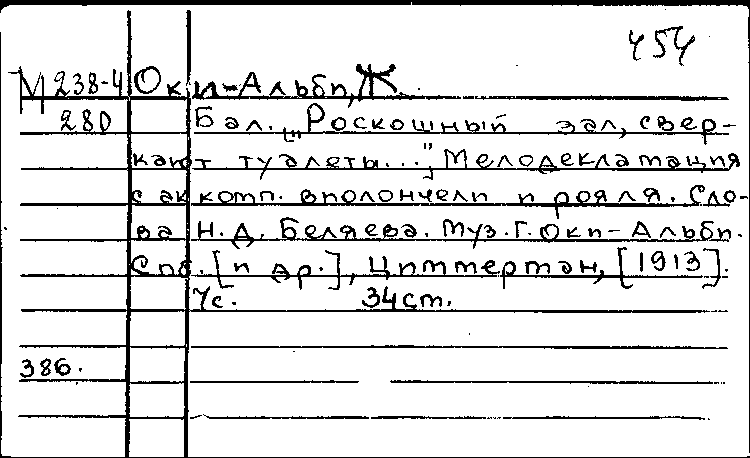 454
М 238-4 Оки-Альби, Ж.
280 Бал. „Роскошный зал, свер-
кают туалеты...", Мелодекламация
с аккомп. виолончели и рояля. Сло-
ва Н. Д. Беляева. Муз. Г. Оки-Альби.
Спб. [и др.], Циммерман, [1913].
7с. 34см.
386.